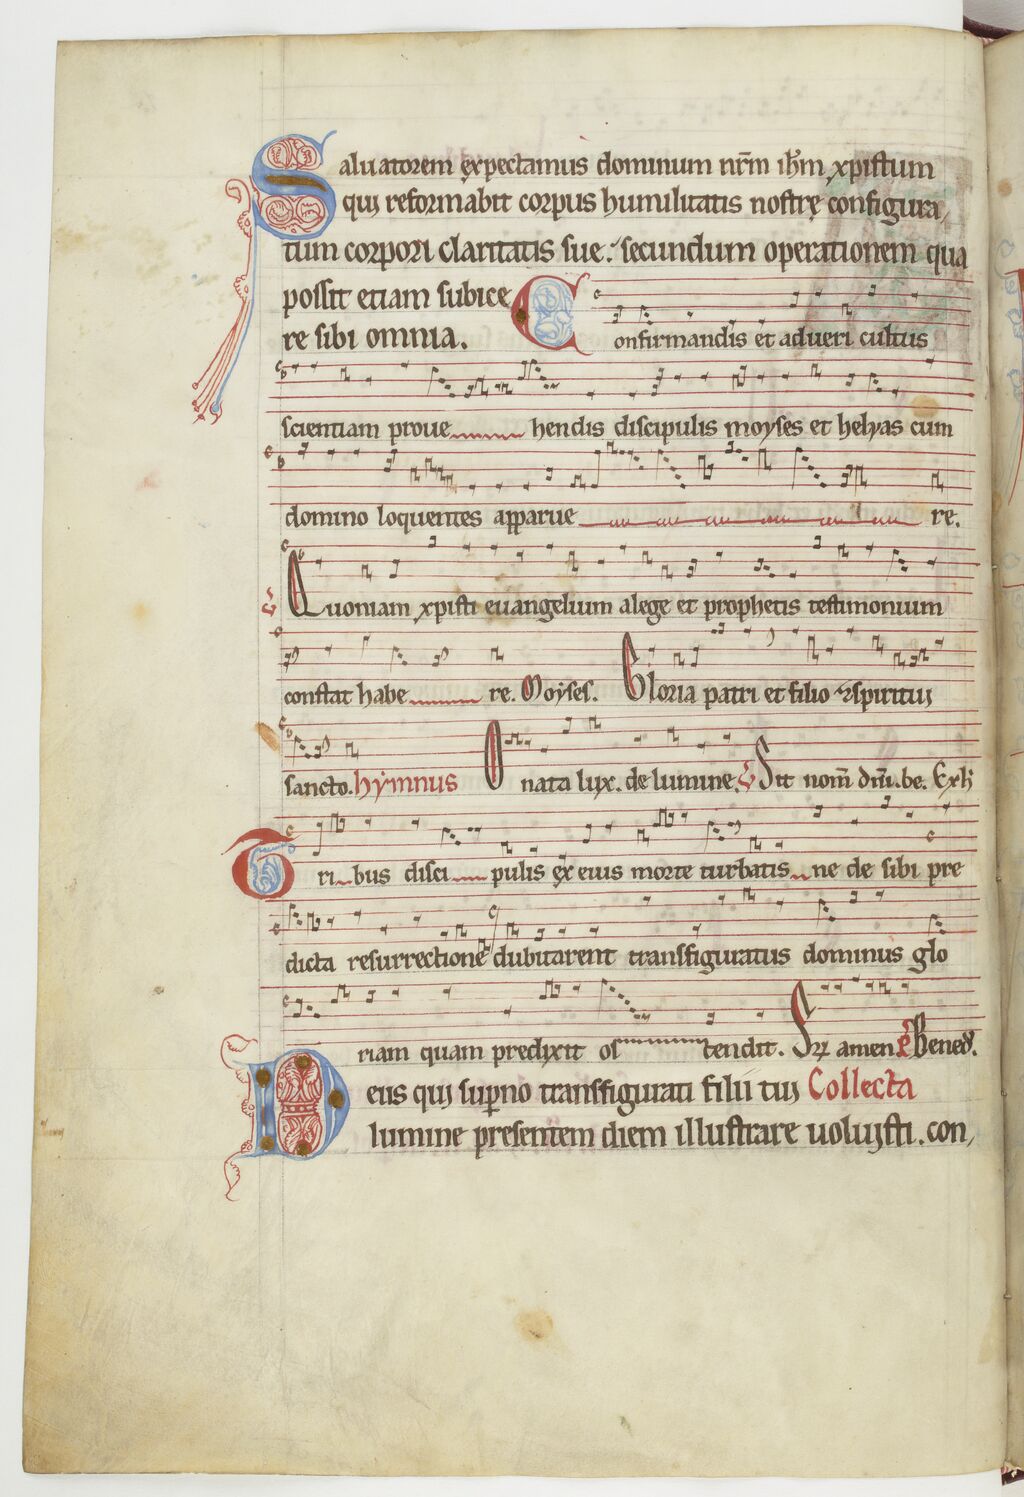 Saluatorem expectamus dominum nr̄m ih̄m xpistum
qui reformabit corpus humilitatis nostrę configura,
tum corpori claritatis sue. secundum operationem qua
possit etiam subice
re sibi omnia. Confirmandis et adueri cultus
scientiam proue hendis discipulis moyses et helyas cum
domino loquentes apparue re.
℣ Quoniam xpisti euangelium alege et prophetis testimonium
constat habe re. Moyses. Gloria patri et filio ⁊ spiritui
sancto. hymnus O nata lux. de lumine. ℣ Sit nom̄ dn̄i. be. Ex h
Tribus disci pulis ex eius morte turbatis ne de sibi pre
dicta resurrectione dubitarent transfiguratus dominus glo
riam quam predixit os tendit. amen Bened.
Deus qui sup̱no transfigurati filii tui Collecta
lumine presentem diem illustrare uoluisti. con,